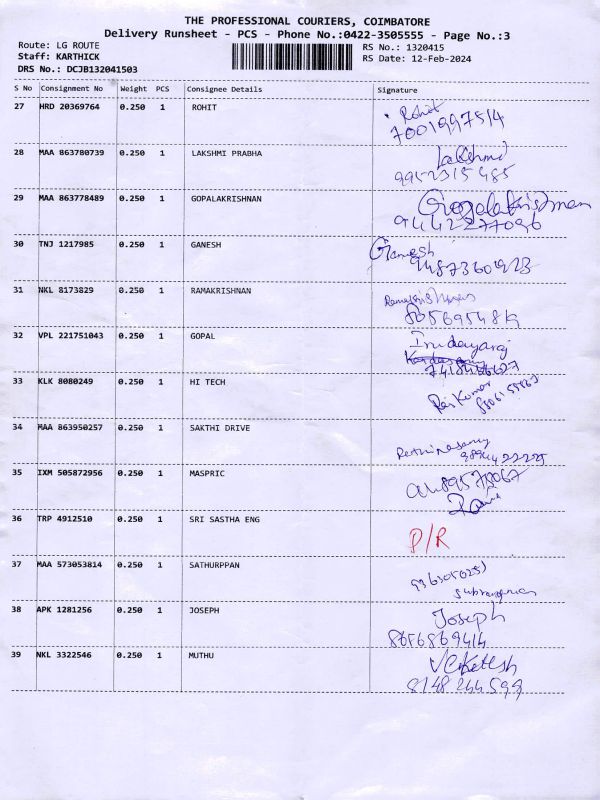 THE PROFESSIONAL COURIERS, COIMBATORE
Delivery Runsheet - PCS - Phone No.:0422-3505555 - Page No.:3
Route: LG ROUTE RS No.: 1320415
Staff: KARTHICK RS Date: 12-Feb-2024
DRS No.: DCJB132041503
S No Consignment No Weight PCS Consignee Details Signature
27 HRD 20369764 0.250 1 ROHIT Rohit
7001997514
28 MAA 863780739 0.250 1 LAKSHMI PRABHA Lakshmi
9952315485
29 MAA 863778489 0.250 1 GOPALAKRISHNAN Gopalakrishnan
9442277096
30 TNJ 1217985 0.250 1 GANESH Ganesh
9487360923
31 NKL 8173829 0.250 1 RAMAKRISHNAN
32 VPL 221751043 0.250 1 GOPAL Irudayaraj
33 KLK 8080249 0.250 1 HI TECH Raj Kumar
34 MAA 863950257 0.250 1 SAKTHI DRIVE
35 IXM 505872956 0.250 1 MASPRIC
36 TRP 4912510 0.250 1 SRI SASTHA ENG D/R
37 MAA 573053814 0.250 1 SATHURPPAN
38 APK 1281256 0.250 1 JOSEPH Joseph
8656869414
39 NKL 3322546 0.250 1 MUTHU
8148244599